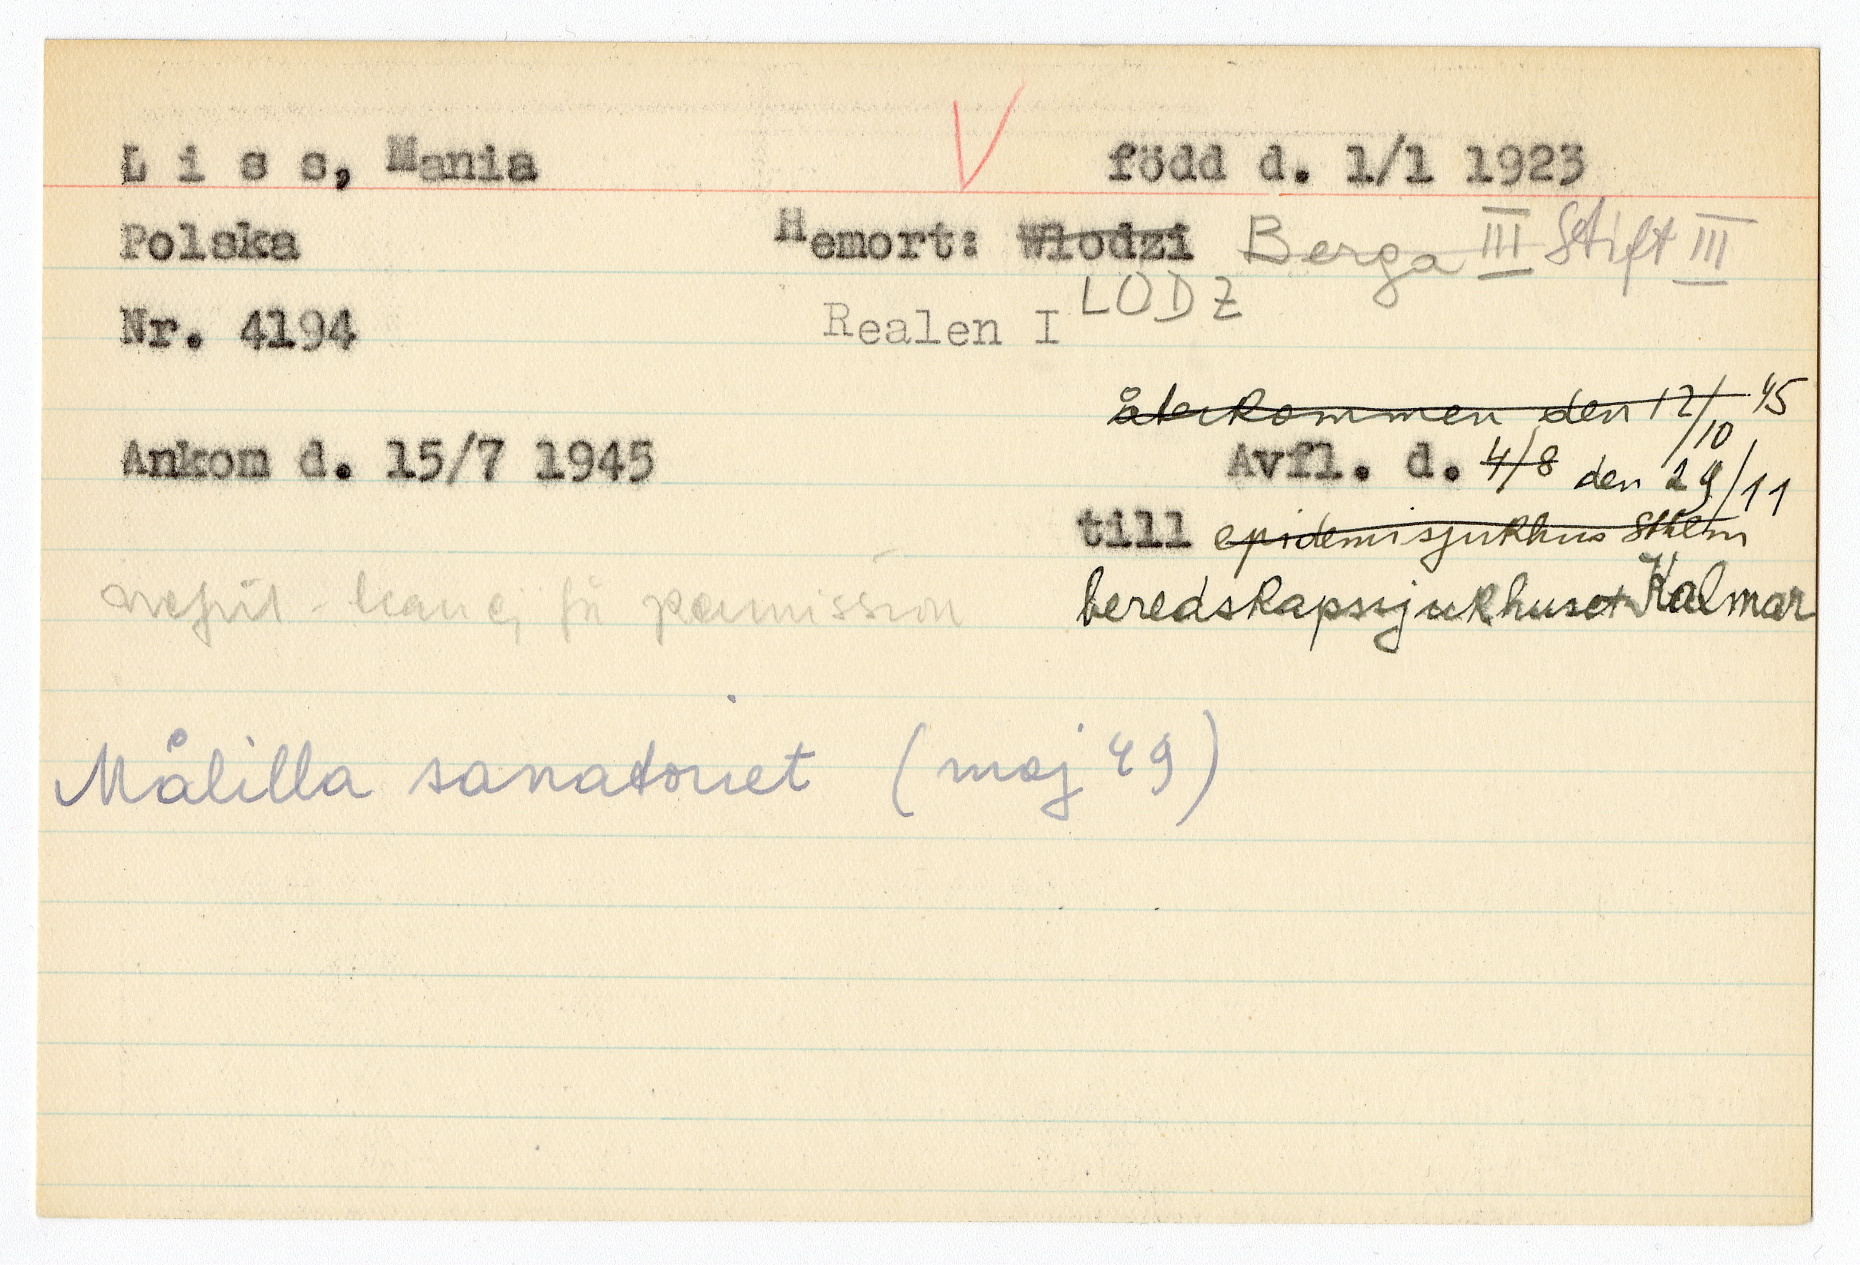 L i s s, Mania född d. 1/1 1923
Polska Hemort: Wlodzi Berga III Stift III
LODZ
Nr. 4194 Realen I
återkommen den 12/10 45
Ankom d. 15/7 1945 Avfl. d. 4/8 den 29/11
till epidemisjukhus Sthlm
kan ej få permission beredskapssjukhuset Kalmar
Målilla sanatoriet (maj 49)